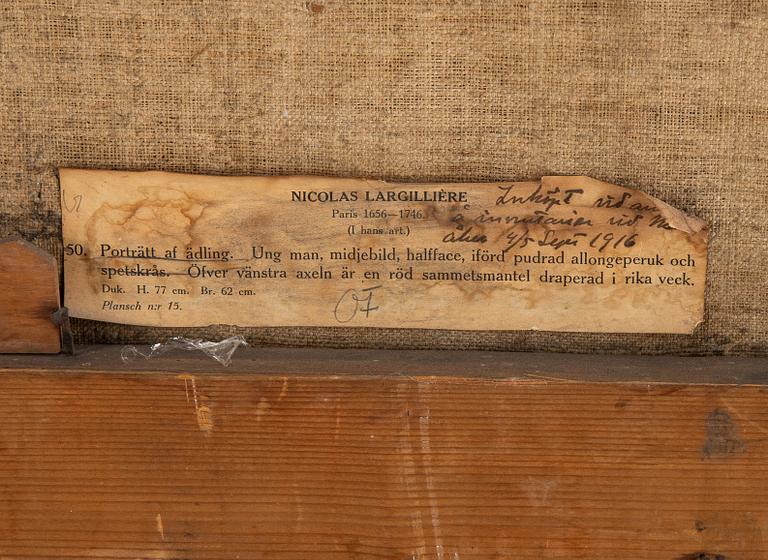 NICOLAS LARGILLIÈRE
Paris 1656—1746.
(I hans art.)
Inköpt vid
å inventarier vid
14/5 Sept 1916
50. Porträtt af ädling. Ung man, midjebild, halfface, iförd pudrad allongeperuk och
spetskrås. Öfver vänstra axeln är en röd sammetsmantel draperad i rika veck.
Duk. H. 77 cm. Br. 62 cm.
Plansch n:r 15.